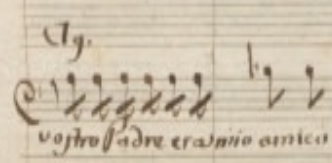 Ag.
vostro Padre era mio amico